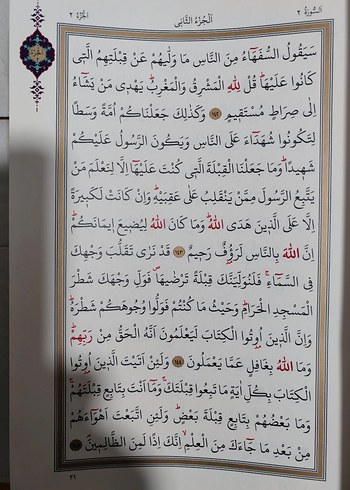 اَلسُّورَةُ ٢ اَلْجُزْءُ الثَّانِى اَلْجُزْءُ ٢
سَيَقُولُ السُّفَهَٓاءُ مِنَ النَّاسِ مَا وَلّٰيهُمْ عَنْ قِبْلَتِهِمُ الَّتٖى
كَانُوا عَلَيْهَاؕ قُلْ لِلّٰهِ الْمَشْرِقُ وَالْمَغْرِبُؕ يَهْدٖى مَنْ يَشَٓاءُ
اِلٰى صِرَاطٍ مُسْتَقٖيمٍ ﴿١٤٢﴾ وَكَذٰلِكَ جَعَلْنَاكُمْ اُمَّةً وَسَطًا
لِتَكُونُوا شُهَدَٓاءَ عَلَى النَّاسِ وَيَكُونَ الرَّسُولُ عَلَيْكُمْ
شَهٖيدًاؕ وَمَا جَعَلْنَا الْقِبْلَةَ الَّتٖى كُنْتَ عَلَيْهَٓا اِلَّا لِنَعْلَمَ مَنْ
يَتَّبِعُ الرَّسُولَ مِمَّنْ يَنْقَلِبُ عَلٰى عَقِبَيْهِؕ وَاِنْ كَانَتْ لَكَبٖيرَةً
اِلَّا عَلَى الَّذٖينَ هَدَى اللّٰهُؕ وَمَا كَانَ اللّٰهُ لِيُضٖيعَ اٖيمَانَكُمْؕ
اِنَّ اللّٰهَ بِالنَّاسِ لَرَؤُفٌ رَحٖيمٌ ﴿١٤٣﴾ قَدْ نَرٰى تَقَلُّبَ وَجْهِكَ
فِى السَّمَٓاءِۚ فَلَنُوَلِّيَنَّكَ قِبْلَةً تَرْضٰيهَاࣕ فَوَلِّ وَجْهَكَ شَطْرَ
الْمَسْجِدِ الْحَرَامِؕ وَحَيْثُ مَا كُنْتُمْ فَوَلُّوا وُجُوهَكُمْ شَطْرَهُؕ
وَاِنَّ الَّذٖينَ اُو۫تُوا الْكِتَابَ لَيَعْلَمُونَ اَنَّهُ الْحَقُّ مِنْ رَبِّهِمْؕ
وَمَا اللّٰهُ بِغَافِلٍ عَمَّا يَعْمَلُونَ ﴿١٤٤﴾ وَلَئِنْ اَتَيْتَ الَّذٖينَ اُو۫تُوا
الْكِتَابَ بِكُلِّ اٰيَةٍ مَا تَبِعُوا قِبْلَتَكَۚ وَمَٓا اَنْتَ بِتَابِعٍ قِبْلَتَهُمْۚ
وَمَا بَعْضُهُمْ بِتَابِعٍ قِبْلَةَ بَعْضٍؕ وَلَئِنِ اتَّبَعْتَ اَهْوَٓاءَهُمْ
مِنْ بَعْدِ مَا جَٓاءَكَ مِنَ الْعِلْمِۙ اِنَّكَ اِذًا لَمِنَ الظَّالِمٖينَۘ
٢١